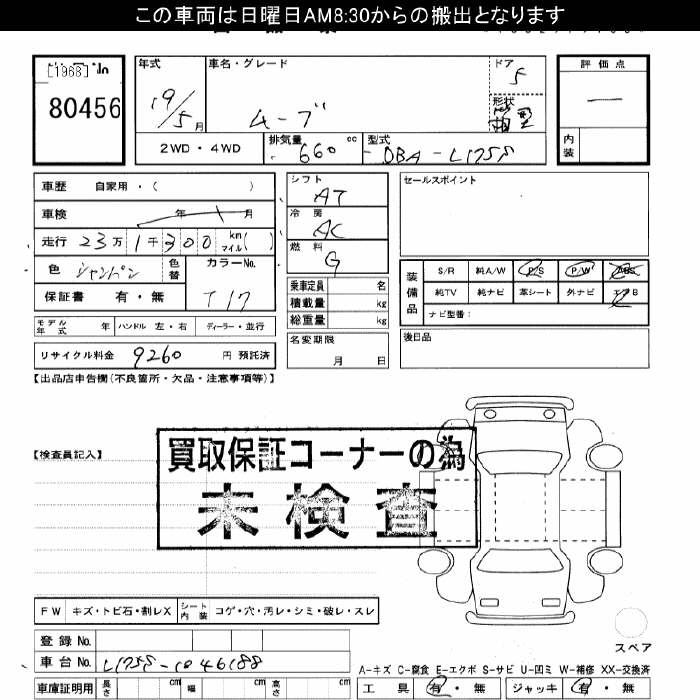 この車両は日曜日AM8:30からの搬出となります
[1968] No
80456
年式
19/5月
車名・グレード
ムーブ
ドア
5
形状
評価点
内装
2WD・4WD
排気量 660 cc
型式 DBA-L175S
車歴 自家用・( )
車検 年 月
走行 23万1千300 km マイル( )
色 シャンパン
色替
カラーNo.
T17
保証書 有・無
モデル年式 年 ハンドル 左・右 ディーラー・並行
リサイクル料金 9260 円 預託済
シフト
AT
冷房
AC
燃料
G
乗車定員 名
積載量 kg
総重量 kg
名変期限
月 日
セールスポイント
装備品
S/R 純A/W P/S P/W ABS
純TV 純ナビ 革シート 外ナビ エアB
ナビ型番:
後日品
【出品店申告欄(不良箇所・欠品・注意事項等)】
【検査員記入】
買取保証コーナーの為
未検査
FW キズ・トビ石・割レX シート内装 コゲ・穴・汚レ・シミ・破レ・スレ
登録No.
車台No. L175S-1046188
車庫証明用 長さ cm 幅 cm 高さ cm
スペア
A-キズ C-腐食 E-エクボ S-サビ U-凹ミ W-補修 XX-交換済
工具 有・無 ジャッキ 有・無